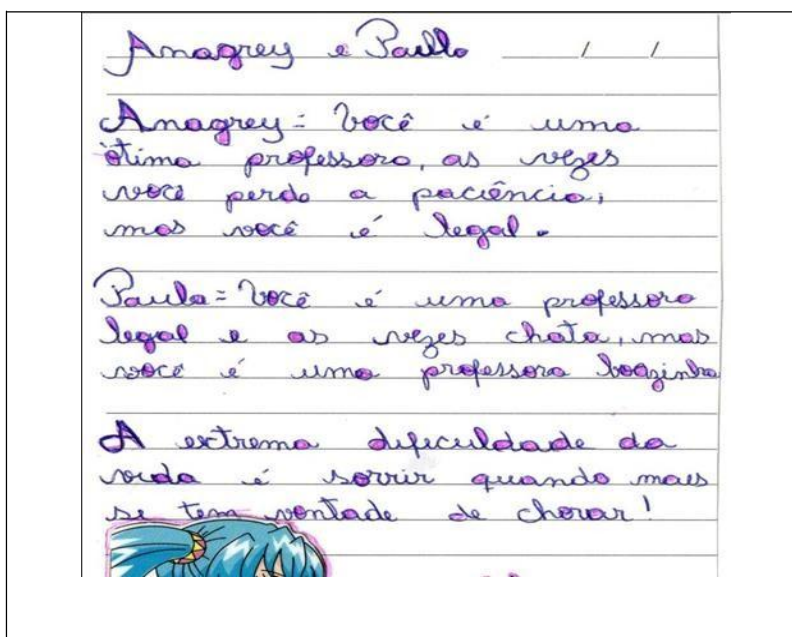 Anagrey e Paullo / /
Anagrey = Você é uma
ótima professora, as vezes
você perde a paciência,
mas você é legal.
Paula = Você é uma professora
legal e as vezes chata, mas
você é uma professora boazinha
A extrema dificuldade da
vida é sorrir quando mais
se tem vontade de chorar!